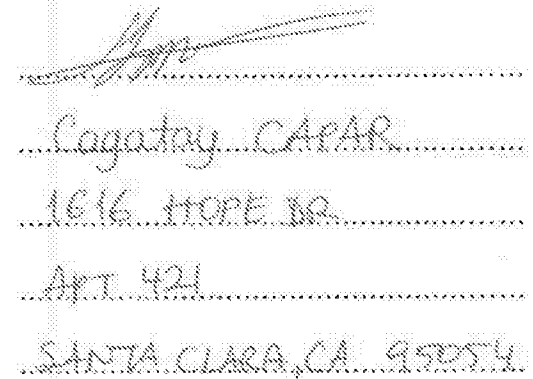 Cagatay CAPAR
1616 HOPE DR
APT 421
SANTA CLARA, CA 95054